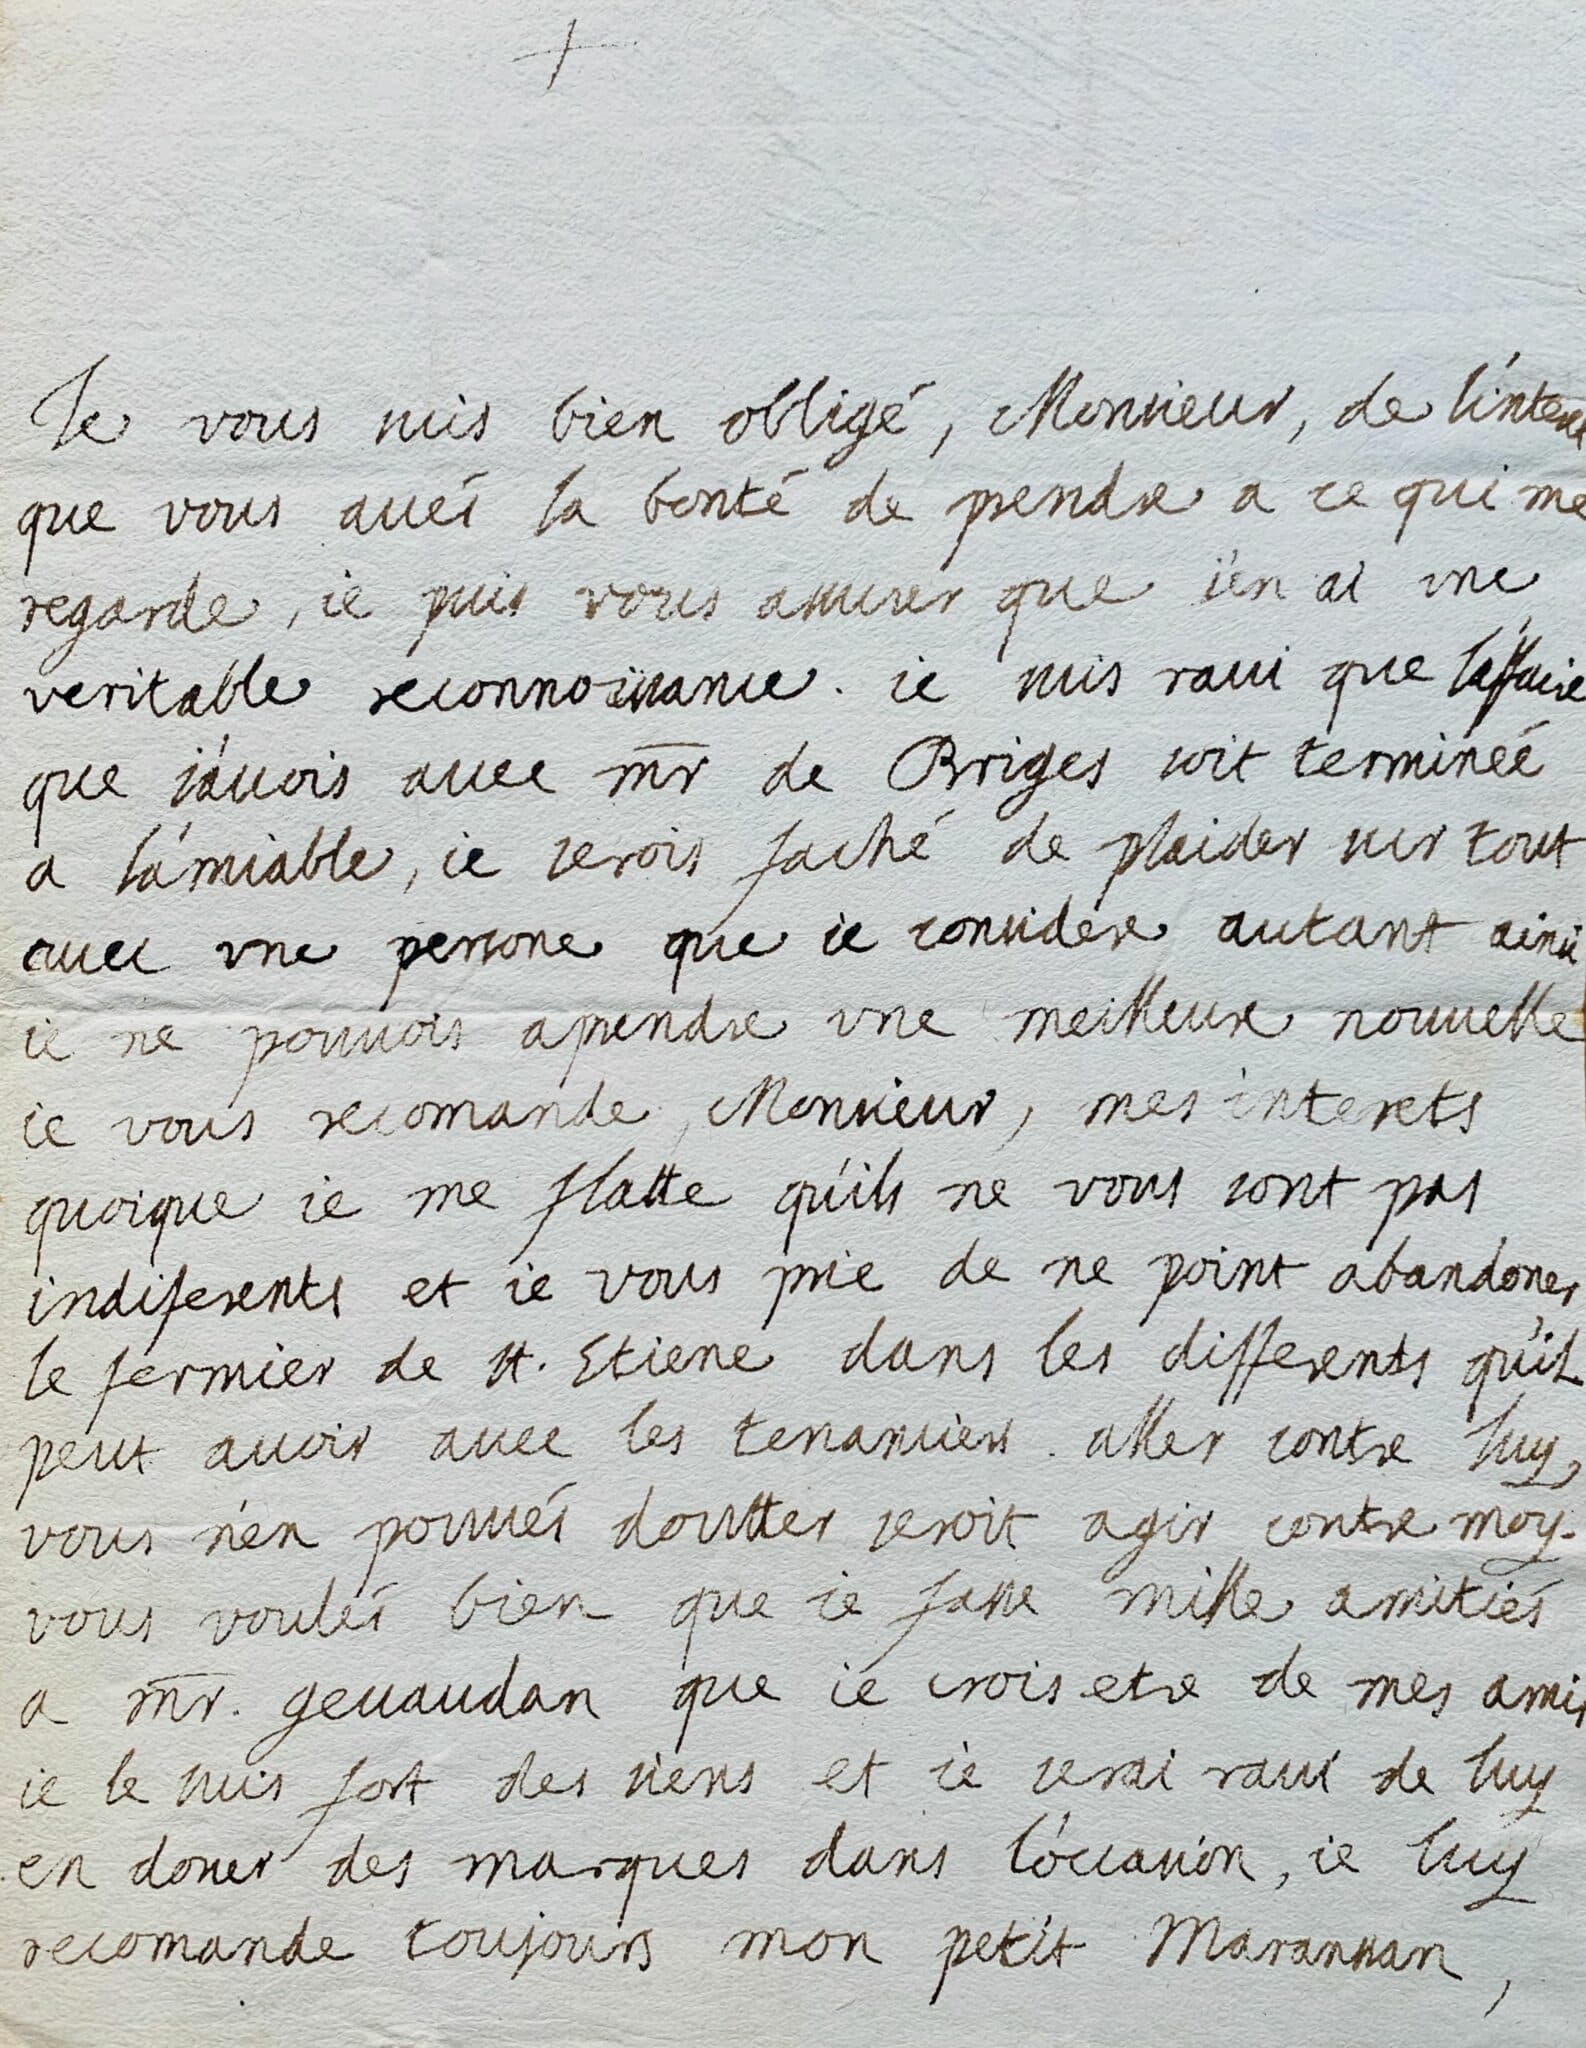 Je vous suis bien obligé, Monsieur, de l'interet
que vous avés la bonté de prendre a ce qui me
regarde, ie puis vous assurer que i'en ai vne
veritable reconnoissance. ie suis ravi que l'affaire
que j'auois auec mr de Briges soit terminéé
a l'amiable, ie serois faché de plaider sur tout
auec vne persone que ie considere autant ainsi
ie ne pouuois aprendre vne meilleure nouuelle
ie vous recomande, Monsieur, mes interets
quoique ie me flatte qu'ils ne vous sont pas
indiferents et ie vous prie de ne point abandoner
le fermier de st. Etiene dans les differents qu'il
peut auoir auec les tenanciers. aller contre luy,
vous n'en pouués doutter seroit agir contre moy.
vous voulés bien que ie fasse mille amitiés
a mr. gevaudan que ie crois etre de mes amis
ie le suis fort des siens et ie serai raui de luy
en doner des marques dans l'occasion, ie luy
recomande toujours mon petit Maranssan,